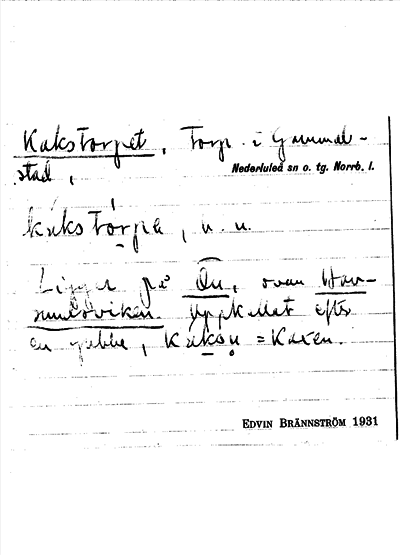 Kakstorpet, Torp i Gammel-
stad,
Nederluleå sn o. tg. Norrb. l.
kakstorpa, n. n.
Ligger på Ön, ovan Hav-
Uppkallat efter
en gubbe, Kaksn = Kaxen.
EDVIN BRÄNNSTRÖM 1931